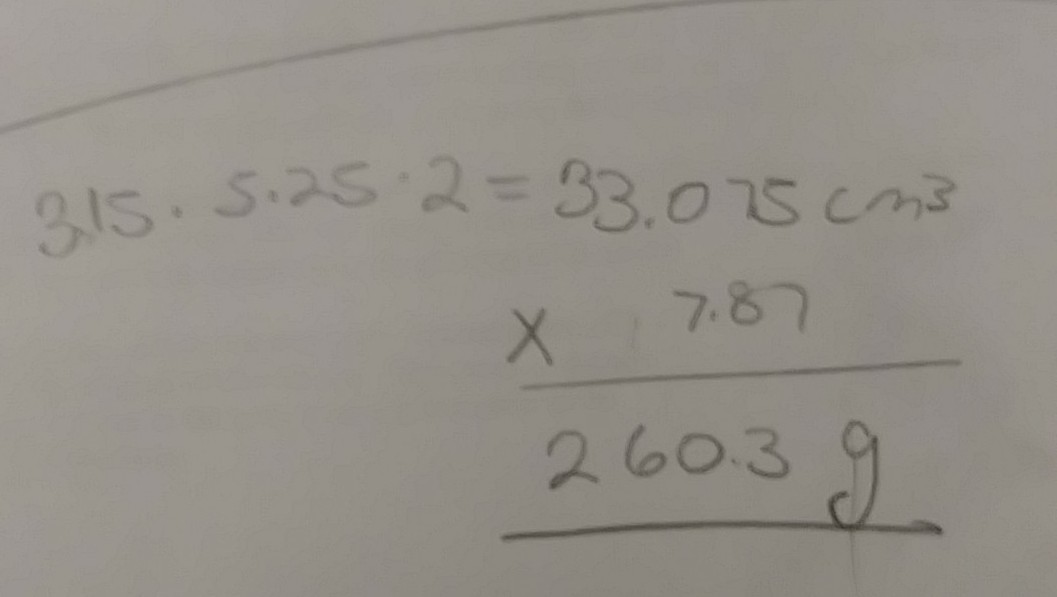 3.15 · 5.25 · 2 = 33.075 cm³
x 7.87
260.3 g